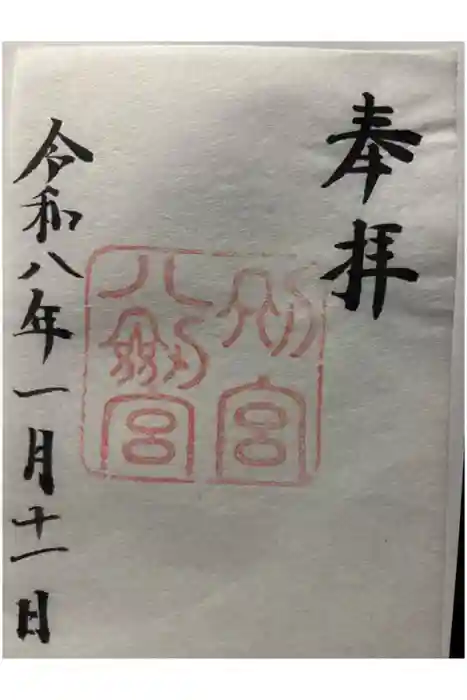 奉拝
別宮
八劔宮
令和八年一月十一日